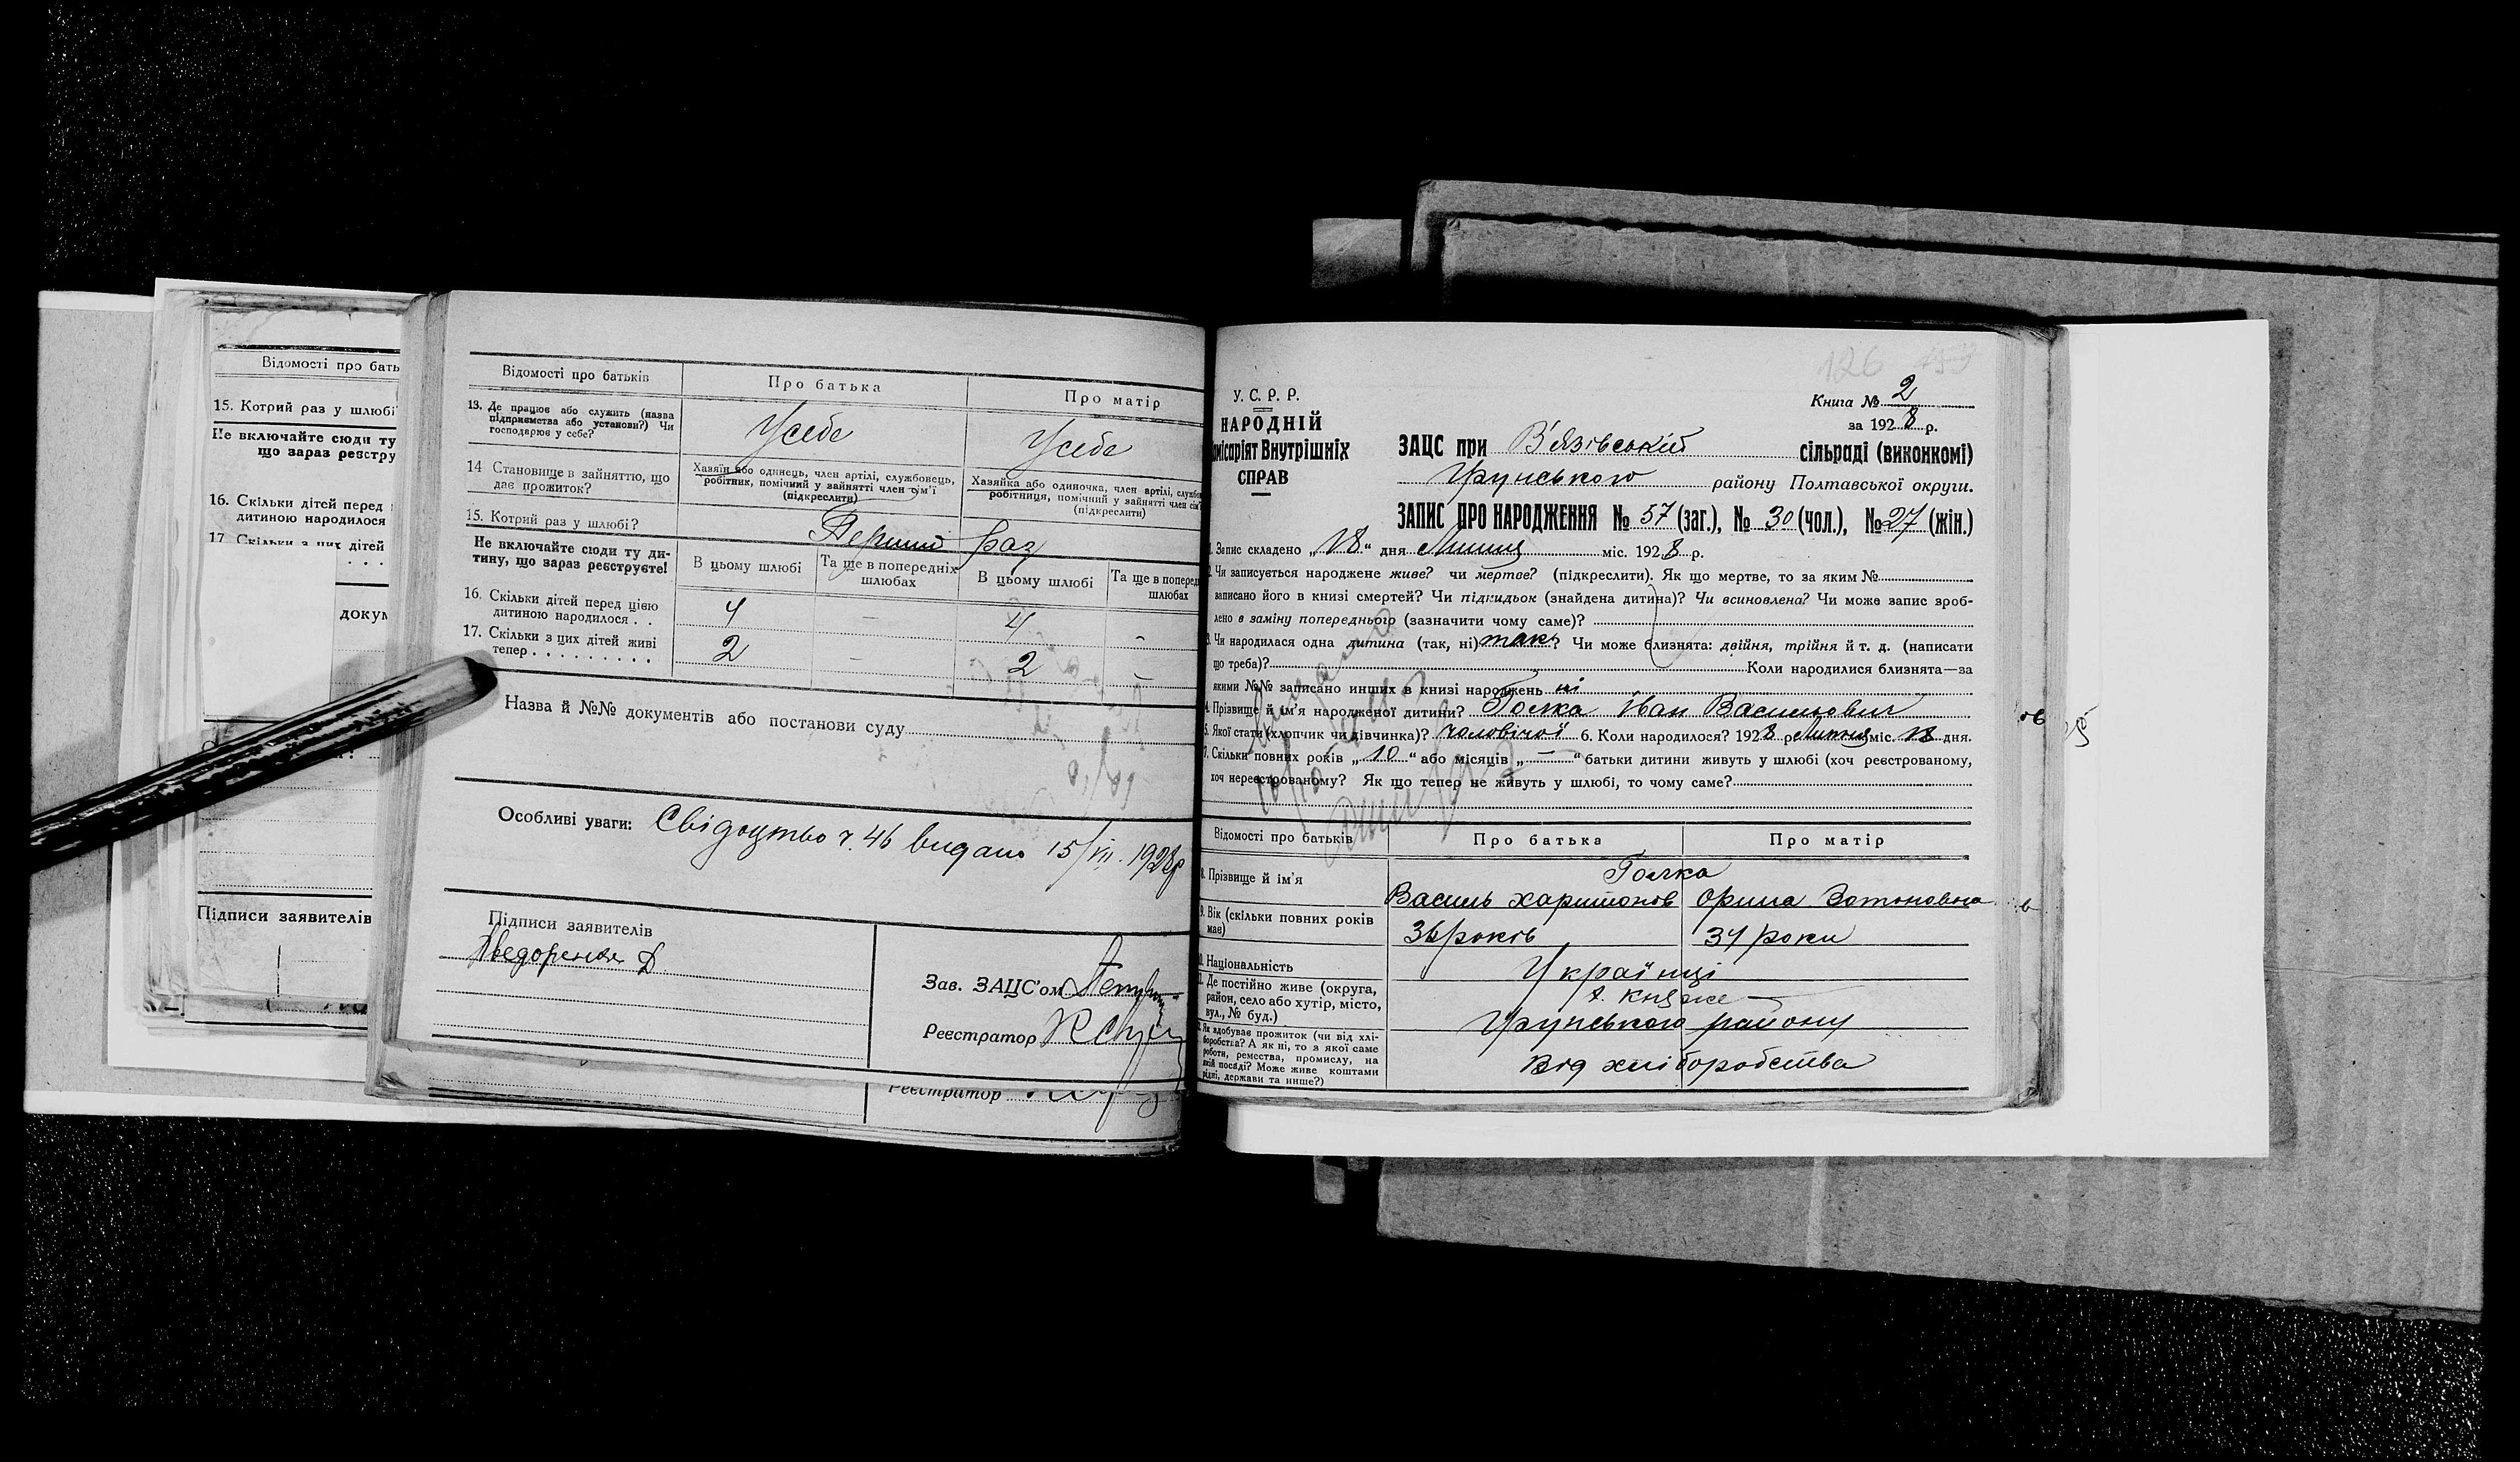 Відомості про бать
15. Котрий раз у шлюбі
Не включайте сюди ту
що зараз реєстру
16. Скільки дітей перед
дитиною народилося
17. Скільки з цих дітей
докум
Підписи заявителів
Відомості про батьків
Про батька
Про матір
13. Де працює або служить (назва
підприємства або установи?) Чи
господарює у себе?
Усебе
Усебе
14 Становище в зайняттю, що
дає прожиток?
Хазяїн або одинець, член артілі, службовець,
робітник, помічний у зайнятті член сім'ї
(підкреслити)
Хазяйка або одиночка, член артілі, службо
робітниця, помічний у зайнятті член сім'
(підкреслити)
15. Котрий раз у шлюбі?
Перший раз
Не включайте сюди ту ди-
тину, що зараз реєструєте!
В цьому шлюбі
Та ще в попередніх
шлюбах
В цьому шлюбі
Та ще в поперед
шлюбах
16. Скільки дітей перед цією
дитиною народилося . .
4 — 4 -
17. Скільки з цих дітей живі
тепер . . . . . . . . .
2 — 2 -
Назва й №№ документів або постанови суду
Особливі уваги: Свідоцтво ч. 46 видано 15/VIII. 1928р
Підписи заявителів
Зав. ЗАЦС'ом
Реєстратор
Реєстратор
126
Книга № 2
за 1928 р.
У. С. Р. Р.
НАРОДНІЙ
місаріят Внутрішніх
СПРАВ
ЗАЦС при В'язівській сільраді (виконкомі)
Грунського району Полтавської округи.
ЗАПИС ПРО НАРОДЖЕННЯ № 57 (заг.), № 30 (чол.), № 27 (жін.)
1. Запис складено „18“ дня Липня міс. 1928 р.
2. Чи записується народжене живе? чи мертве? (підкреслити). Як що мертве, то за яким №
записано його в книзі смертей? Чи підкидьок (знайдена дитина)? Чи всиновлена? Чи може запис зроб-
лено в заміну попереднього (зазначити чому саме)?
3. Чи народилася одна дитина (так, ні) так? Чи може близнята: двійня, трійня й т. д. (написати
що треба)? Коли народилися близнята—за
якими №№ записано инших в книзі народжень ні
4. Прізвище й ім'я народженої дитини? Голка Іван Васильович
5. Якої стати (хлопчик чи дівчинка)? чоловічої 6. Коли народилося? 1928 р Липня міс. 18 дня.
7. Скільки повних років „10“ або місяців „—“ батьки дитини живуть у шлюбі (хоч реєстрованому,
хоч нереєстрованому? Як що тепер не живуть у шлюбі, то чому саме?
Відомості про батьків
Про батька
Про матір
8. Прізвище й ім'я
Голка
Василь Харитонов
Орина
9. Вік (скільки повних років
має)
36 років
34 роки
10. Національність
Українці
11. Де постійно живе (округа,
район, село або хутір, місто,
вул., № буд.)
х. Княже
Грунського району
12. Як здобуває прожиток (чи від хлі-
боробства? А як ні, то з якої саме
роботи, ремества, промислу, на
якій посаді? Може живе коштами
рідні, держави та инше?)
Від хліборобства